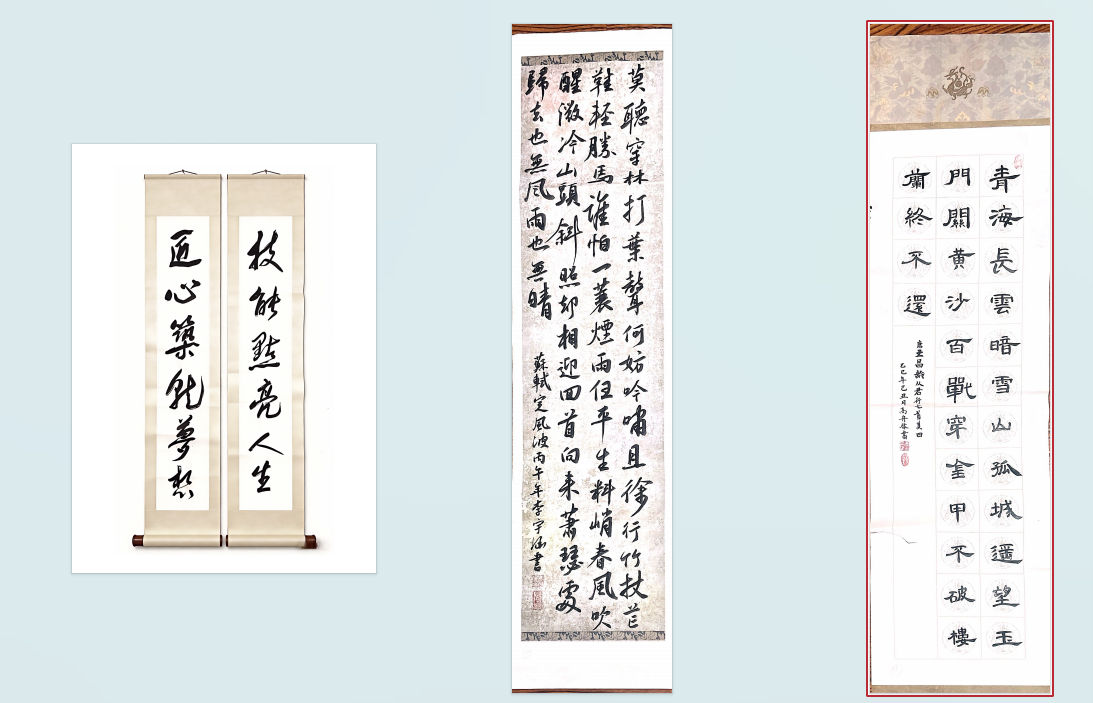 技能點亮人生
匠心築就夢想
莫聽穿林打葉聲何妨吟嘯且徐行竹杖芒
鞋輕勝馬誰怕一蓑煙雨任平生料峭春風吹
醒微冷山頭斜照却相迎回首向来蕭瑟處
歸去也無風雨也無晴
蘇軾定風波丙午年李宇涵書
青海長雲暗雪山孤城遥望玉
門關黄沙百戰穿金甲不破樓
蘭終不還
唐王昌齡从君行七首其四
乙巳年乙丑月